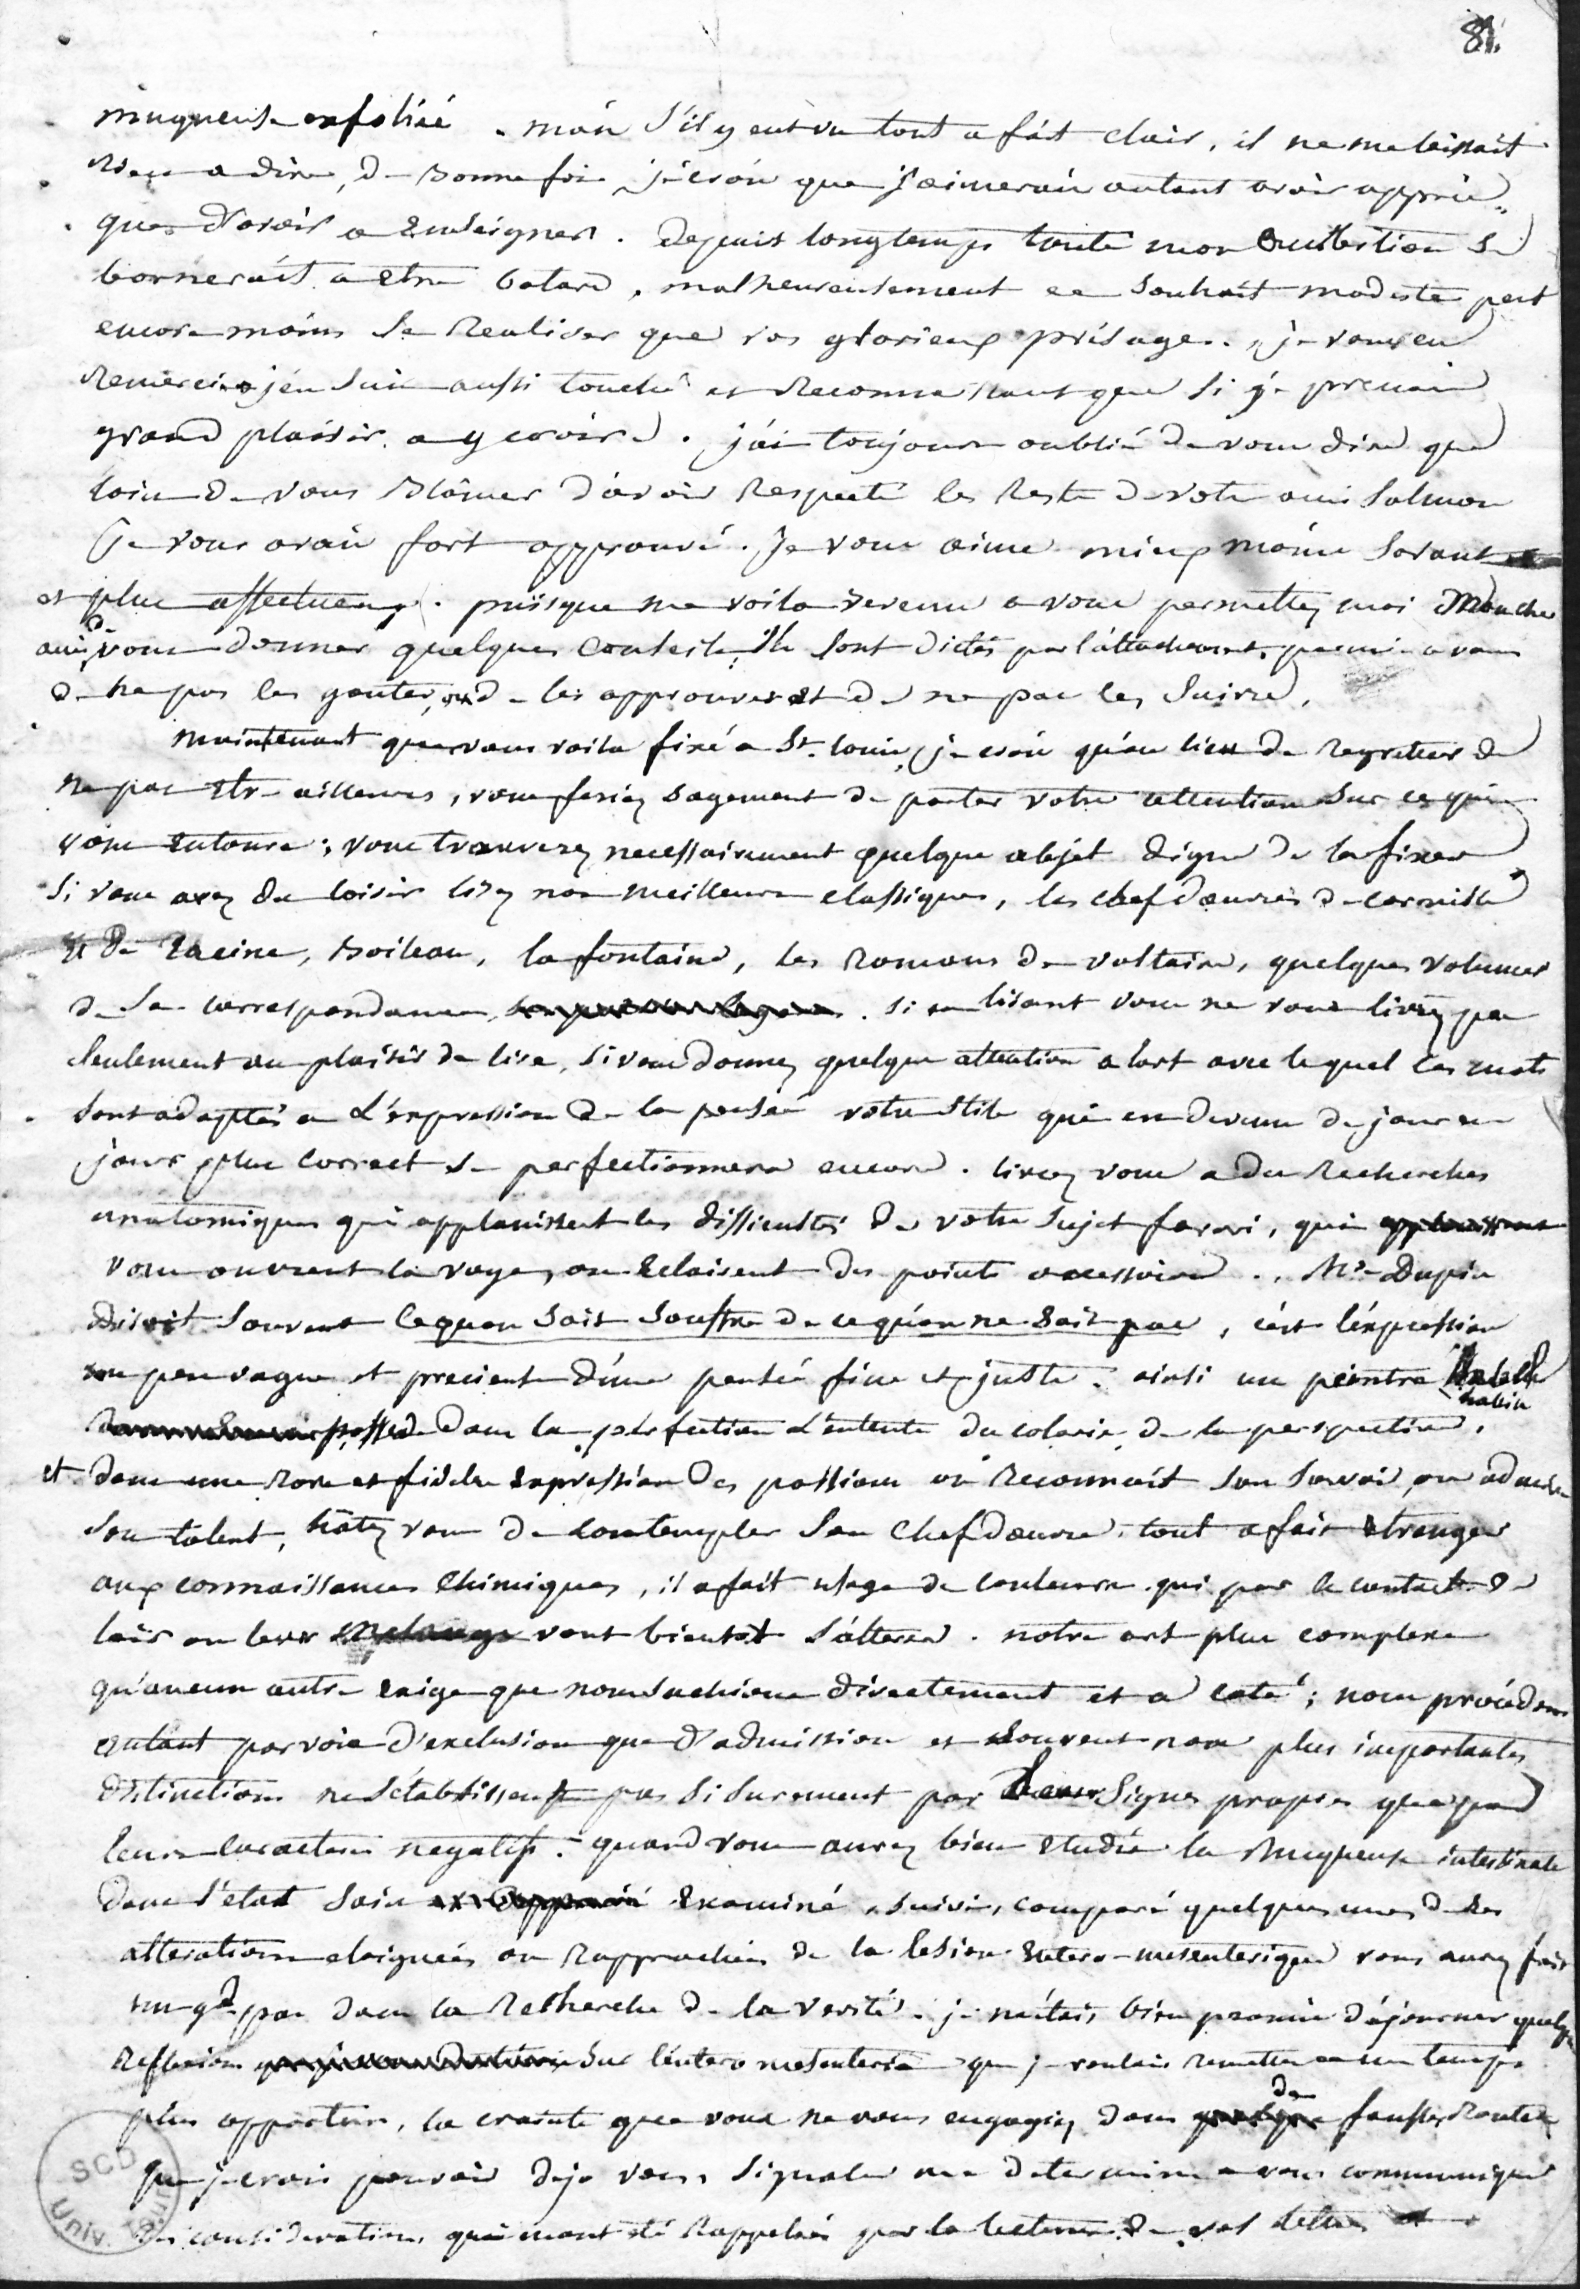 81.
muqueuse exfoliée. mais s'il y eut vu tout a fait clair, il ne me laissait
rien a dire, de bonne foi je crois que j'aimerais autant avoir appris
que d'avoir a enseigner. Depuis longtemps toute mon ambition se
bornerait a etre batard, malheureusement ce souhait modeste peut
encore moins se realiser que vos glorieux présages. je vous en
remercie, j'en suis aussi touché et reconnaissant que si je prenais
grand plaisir a y croire. j'ai toujours oublié de vous dire que
loin de vous blâmer d'avoir respecté les restes de votre ami Salmon
je vous avais fort approuvé. Je vous aime mieux moins savant
et plus affectueux. puisque me voila revenu a vous permettez moi mon cher
ami, de vous donner quelques conseils, ils sont dictés par l'attachement, permis a vous
de ne pas les gouter, ou de les approuver et de ne pas les suivre.
maintenant que vous voila fixé a St. louis, je crois qu'au lieu de regretter de
ne pas etre ailleurs, vous feriez sagement de porter votre attention sur ce qui
vous entoure; vous trouverez necessairement quelque objet digne de la fixer
Si vous avez du loisir lisez nos meilleurs classiques, les chef d'œuvres de corneille
et de Racine, Boileau, la fontaine, les romans de voltaire, quelques volumes
de sa correspondance, . si en lisant vous ne vous livrez pas
seulement au plaisir de lire, si vous donnez quelque attention a l'art avec lequel les mots
sont adaptés a l'expression de la pensée votre stile qui en devenu de jour en
jours plus correct se perfectionnera encore. livrez vous a des recherches
anatomiques qui applanissent les difficultés de votre sujet favori, qui applanissent
vous ouvrent la voye, ou eclaisent des points accessoires. Mr. Dupin
disoit souvent ce qu'on sait souffre de ce qu'on ne sait pas, c'est l'expression
un peu vague et precieuse d'une pensée fine et juste. ainsi un peintre habile
habile
possede dans la perfection l'entente du coloris, de la perspective,
et dans une rare et fidele expression des passions on reconnait son savoir, on admire
son talent, hatez vous de contempler son chef d'œuvre, tout a fait etranger
aux connaissances chimiques, il a fait usage de couleurs qui par le contact de
l'air ou leur melange vont bientot s'alterer. notre art plus complexe
qu'aucun autre exige que nous sachions directement et a coté; nous procédons
autant par voie d'exclusion que d'admission et souvent nos plus importantes
distinctions ne s'établissent pas si surement par leurs signes propres que par
leurs caracteres negatifs. quand vous aurez bien etudié la muqueuse intestinale
dans l'etat sain examiné, suivi, comparé quelques unes de ses
alterations eloignées ou rapprochées de la lesion entero-mesenterique vous aurez fait
un gd. pas dans la recherche de la verité. je m'étais bien promis d'ajourner quelques
reflexions sur l'entero mesenterie que je voulais remettre a un temps
plus opportun, la crainte que vous ne vous engagiez dans quelque de fausses routes
que je crois pouvoir deja vous signaler me determine a vous communiquer
des considerations qui m'ont été rappelées par la lecture de vos lettres
SCD
Univ. Tours